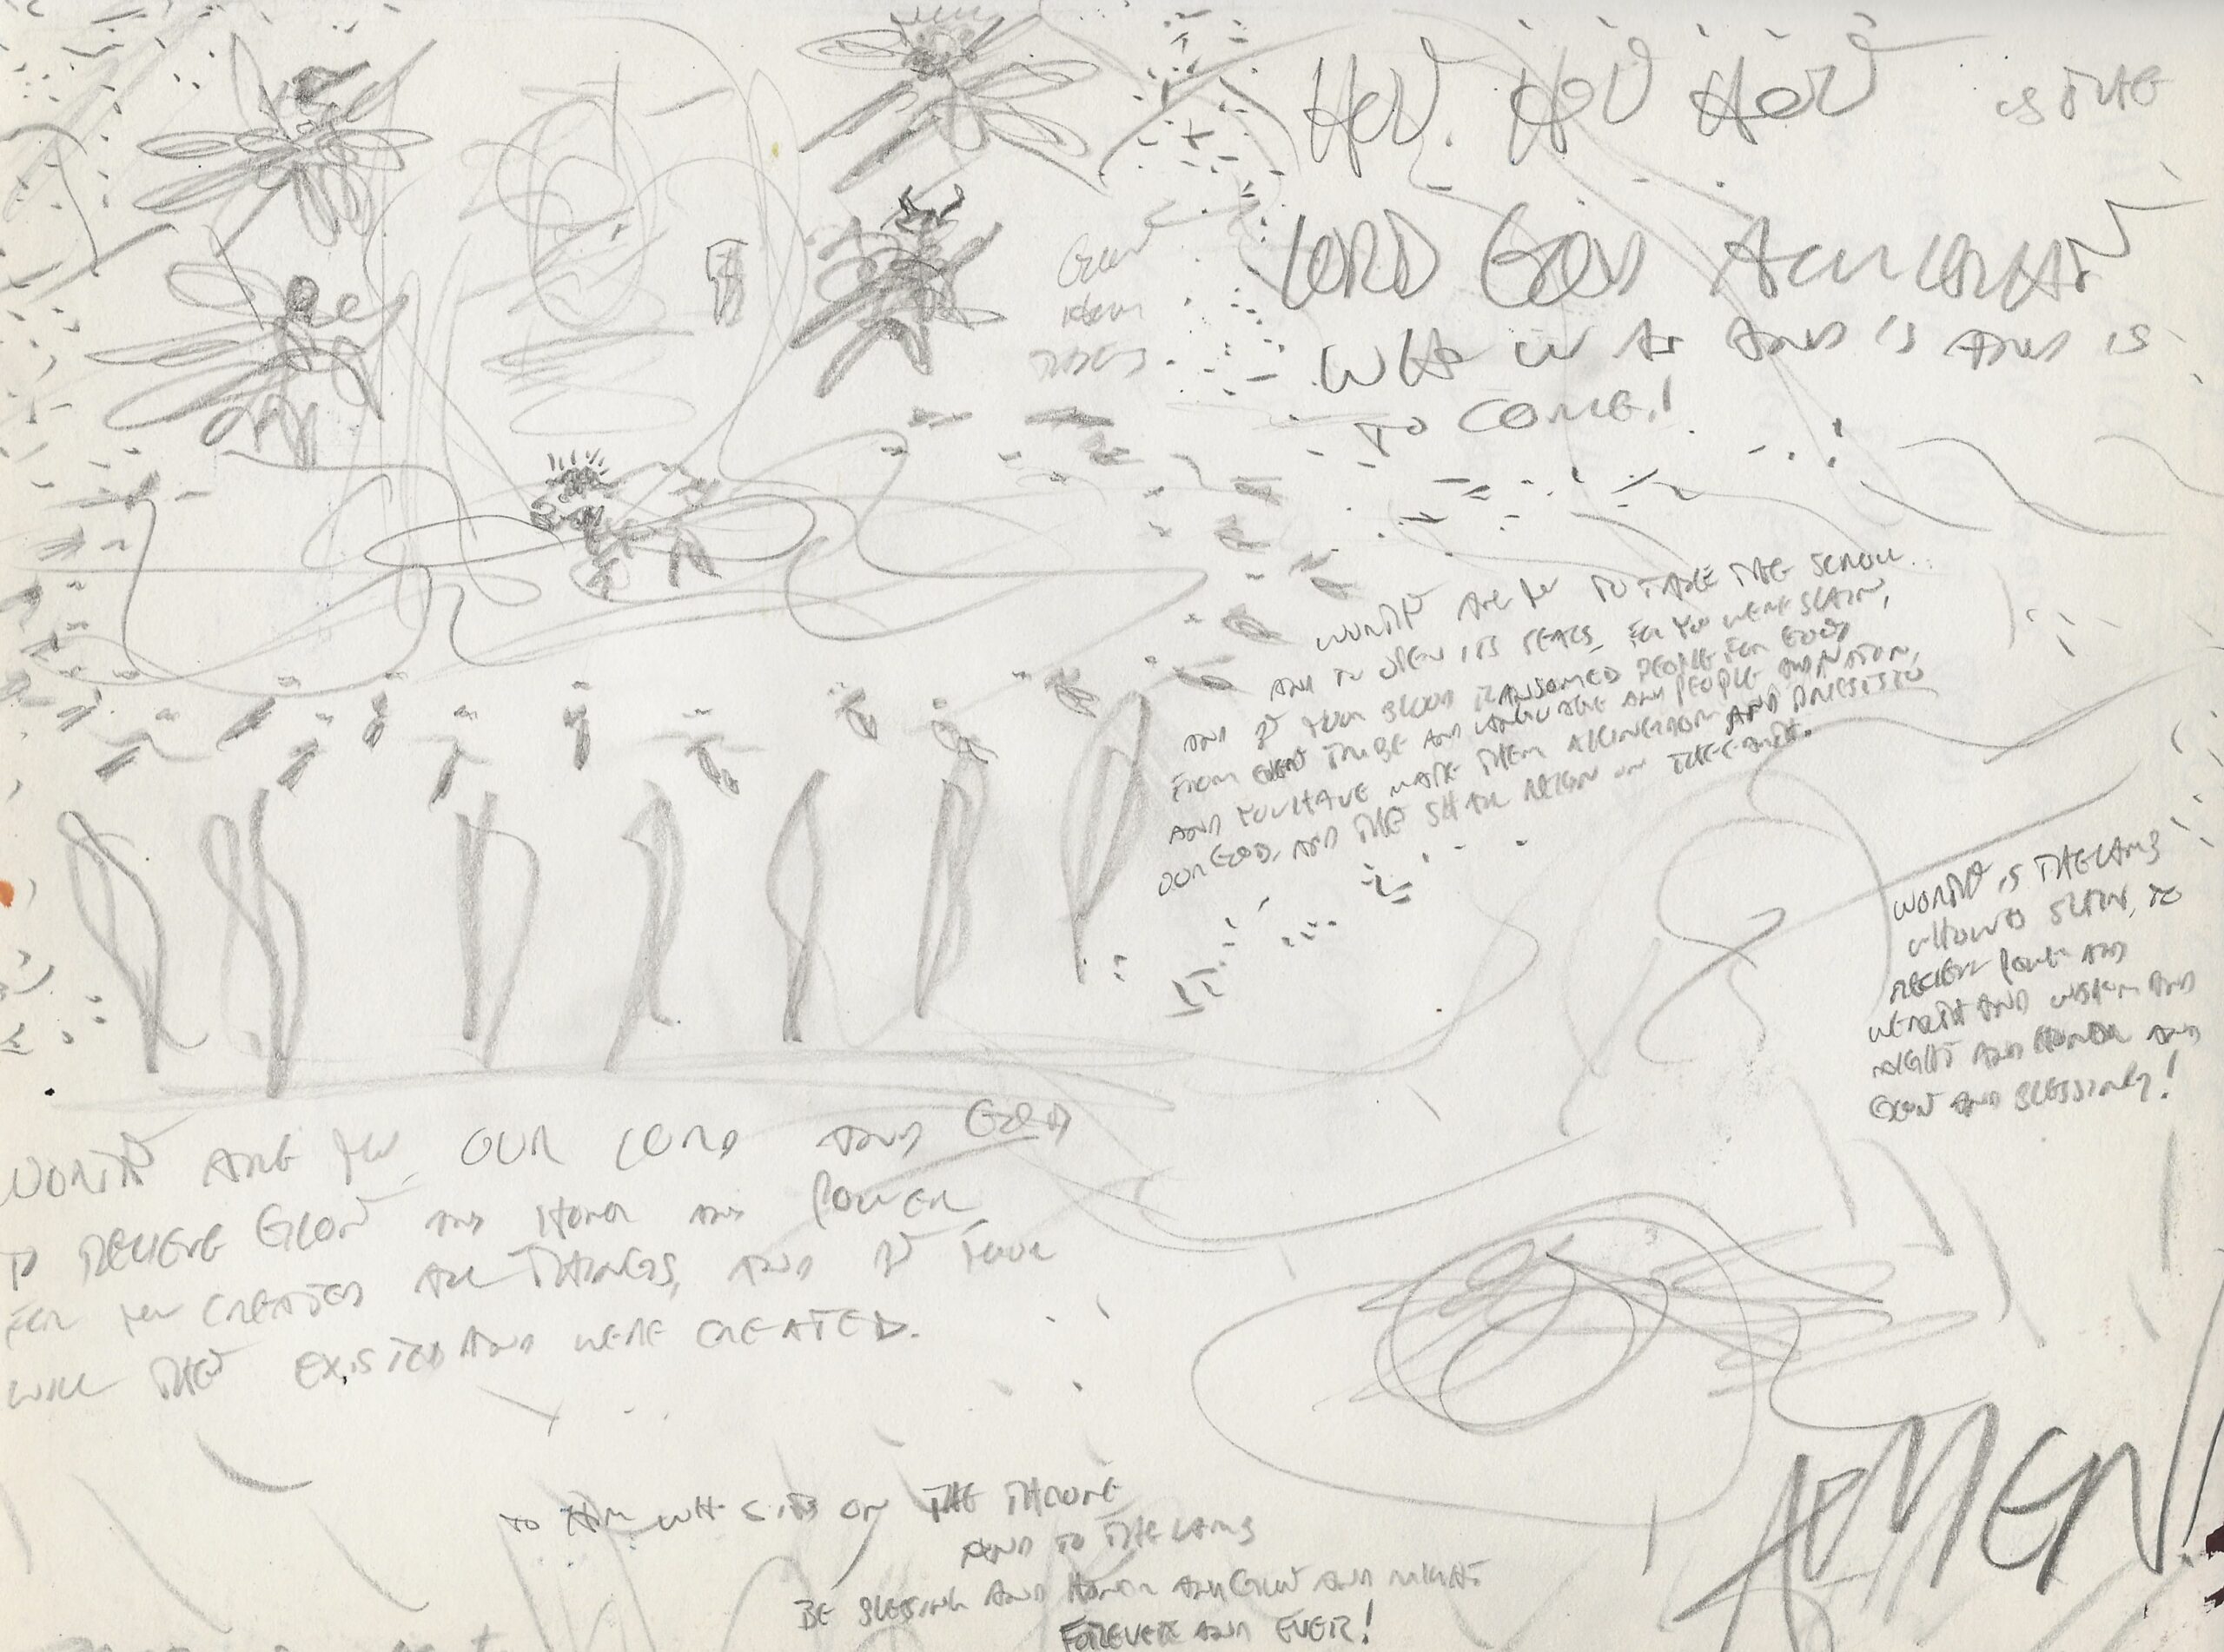 HOLY. HOLY HOLY is THE
LORD GOD ALMIGHTY
WHO WAS AND IS AND IS
TO COME!
WORTHY ARE YOU TO TAKE THE SCROLL
AND TO OPEN ITS SEALS, FOR YOU WERE SLAIN,
AND BY YOUR BLOOD RANSOMED PEOPLE FOR GOD
FROM EVERY TRIBE AND LANGUAGE AND PEOPLE AND NATION,
AND YOU HAVE MADE THEM A KINGDOM AND PRIESTS TO
OUR GOD, AND THEY SHALL REIGN ON THE EARTH.
WORTHY IS THE LAMB
WHO WAS SLAIN, TO
RECIEVE POWER AND
WEALTH AND WISDOM AND
MIGHT AND HONOR AND
GLORY AND BLESSING!
WORTHY ARE YOU, OUR LORD AND GOD
TO RECIEVE GLORY AND HONOR AND POWER,
FOR YOU CREATED ALL THINGS, AND BY YOUR
WILL THEY EXISTED AND WERE CREATED.
TO HIM WHO SITS ON THE THRONE
AND TO THE LAMB
BE BLESSING AND HONOR AND GLORY AND MIGHT
FOREVER AND EVER!
AMEN!